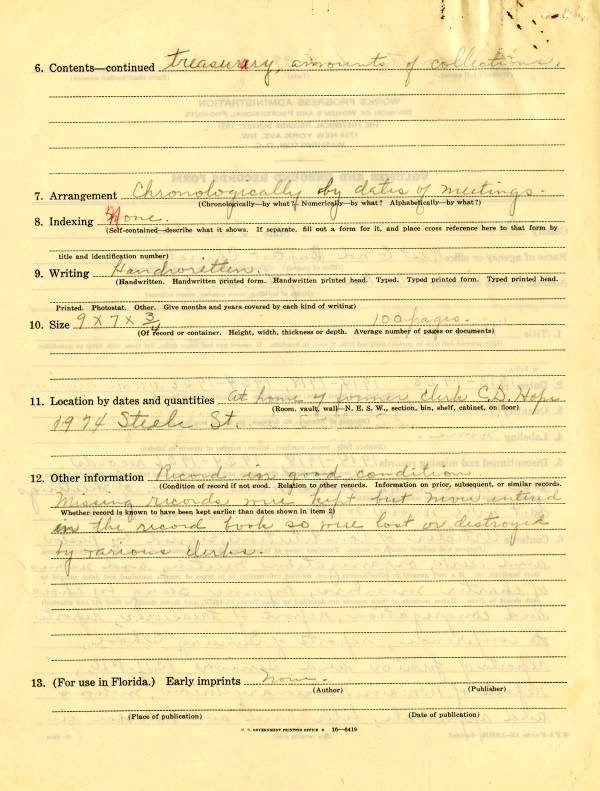 6. Contents—continued treasurary, amounts of collections.
7. Arrangement Chronologically by dates of meetings.
(Chronologically—by what? Numerically—by what? Alphabetically—by what?)
8. Indexing None.
(Self-contained—describe what it shows. If separate, fill out a form for it, and place cross reference here to that form by
title and identification number)
9. Writing Handwritten.
(Handwritten. Handwritten printed form. Handwritten printed head. Typed. Typed printed form. Typed printed head.
Printed. Photostat. Other. Give months and years covered by each kind of writing)
10. Size 9 x 7 x 3/4 100 pages.
(Of record or container. Height, width, thickness or depth. Average number of pages or documents)
11. Location by dates and quantities At home of former clerk C.D. Hope
(Room, vault, wall—N, E, S, W., section, bin, shelf, cabinet, on floor)
1974 Steele St.
12. Other information Record in good condition
(Condition of record if not good. Relation to other records. Information on prior, subsequent, or similar records.
Missing records were kept but never entered
Whether record is known to have been kept earlier than dates shown in item 2)
in the record book so were lost or destroyed
by various clerks.
13. (For use in Florida.) Early imprints None.
(Author) (Publisher)
(Place of publication) (Date of publication)
U. S. GOVERNMENT PRINTING OFFICE 16—6419